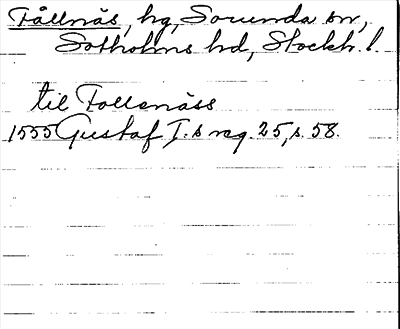 Fållnäs, hg, Sorunda sn,
Sotholms hd, Stockh. l.
til Follsnäss
1555 Gustaf I.s reg. 25, s. 58.